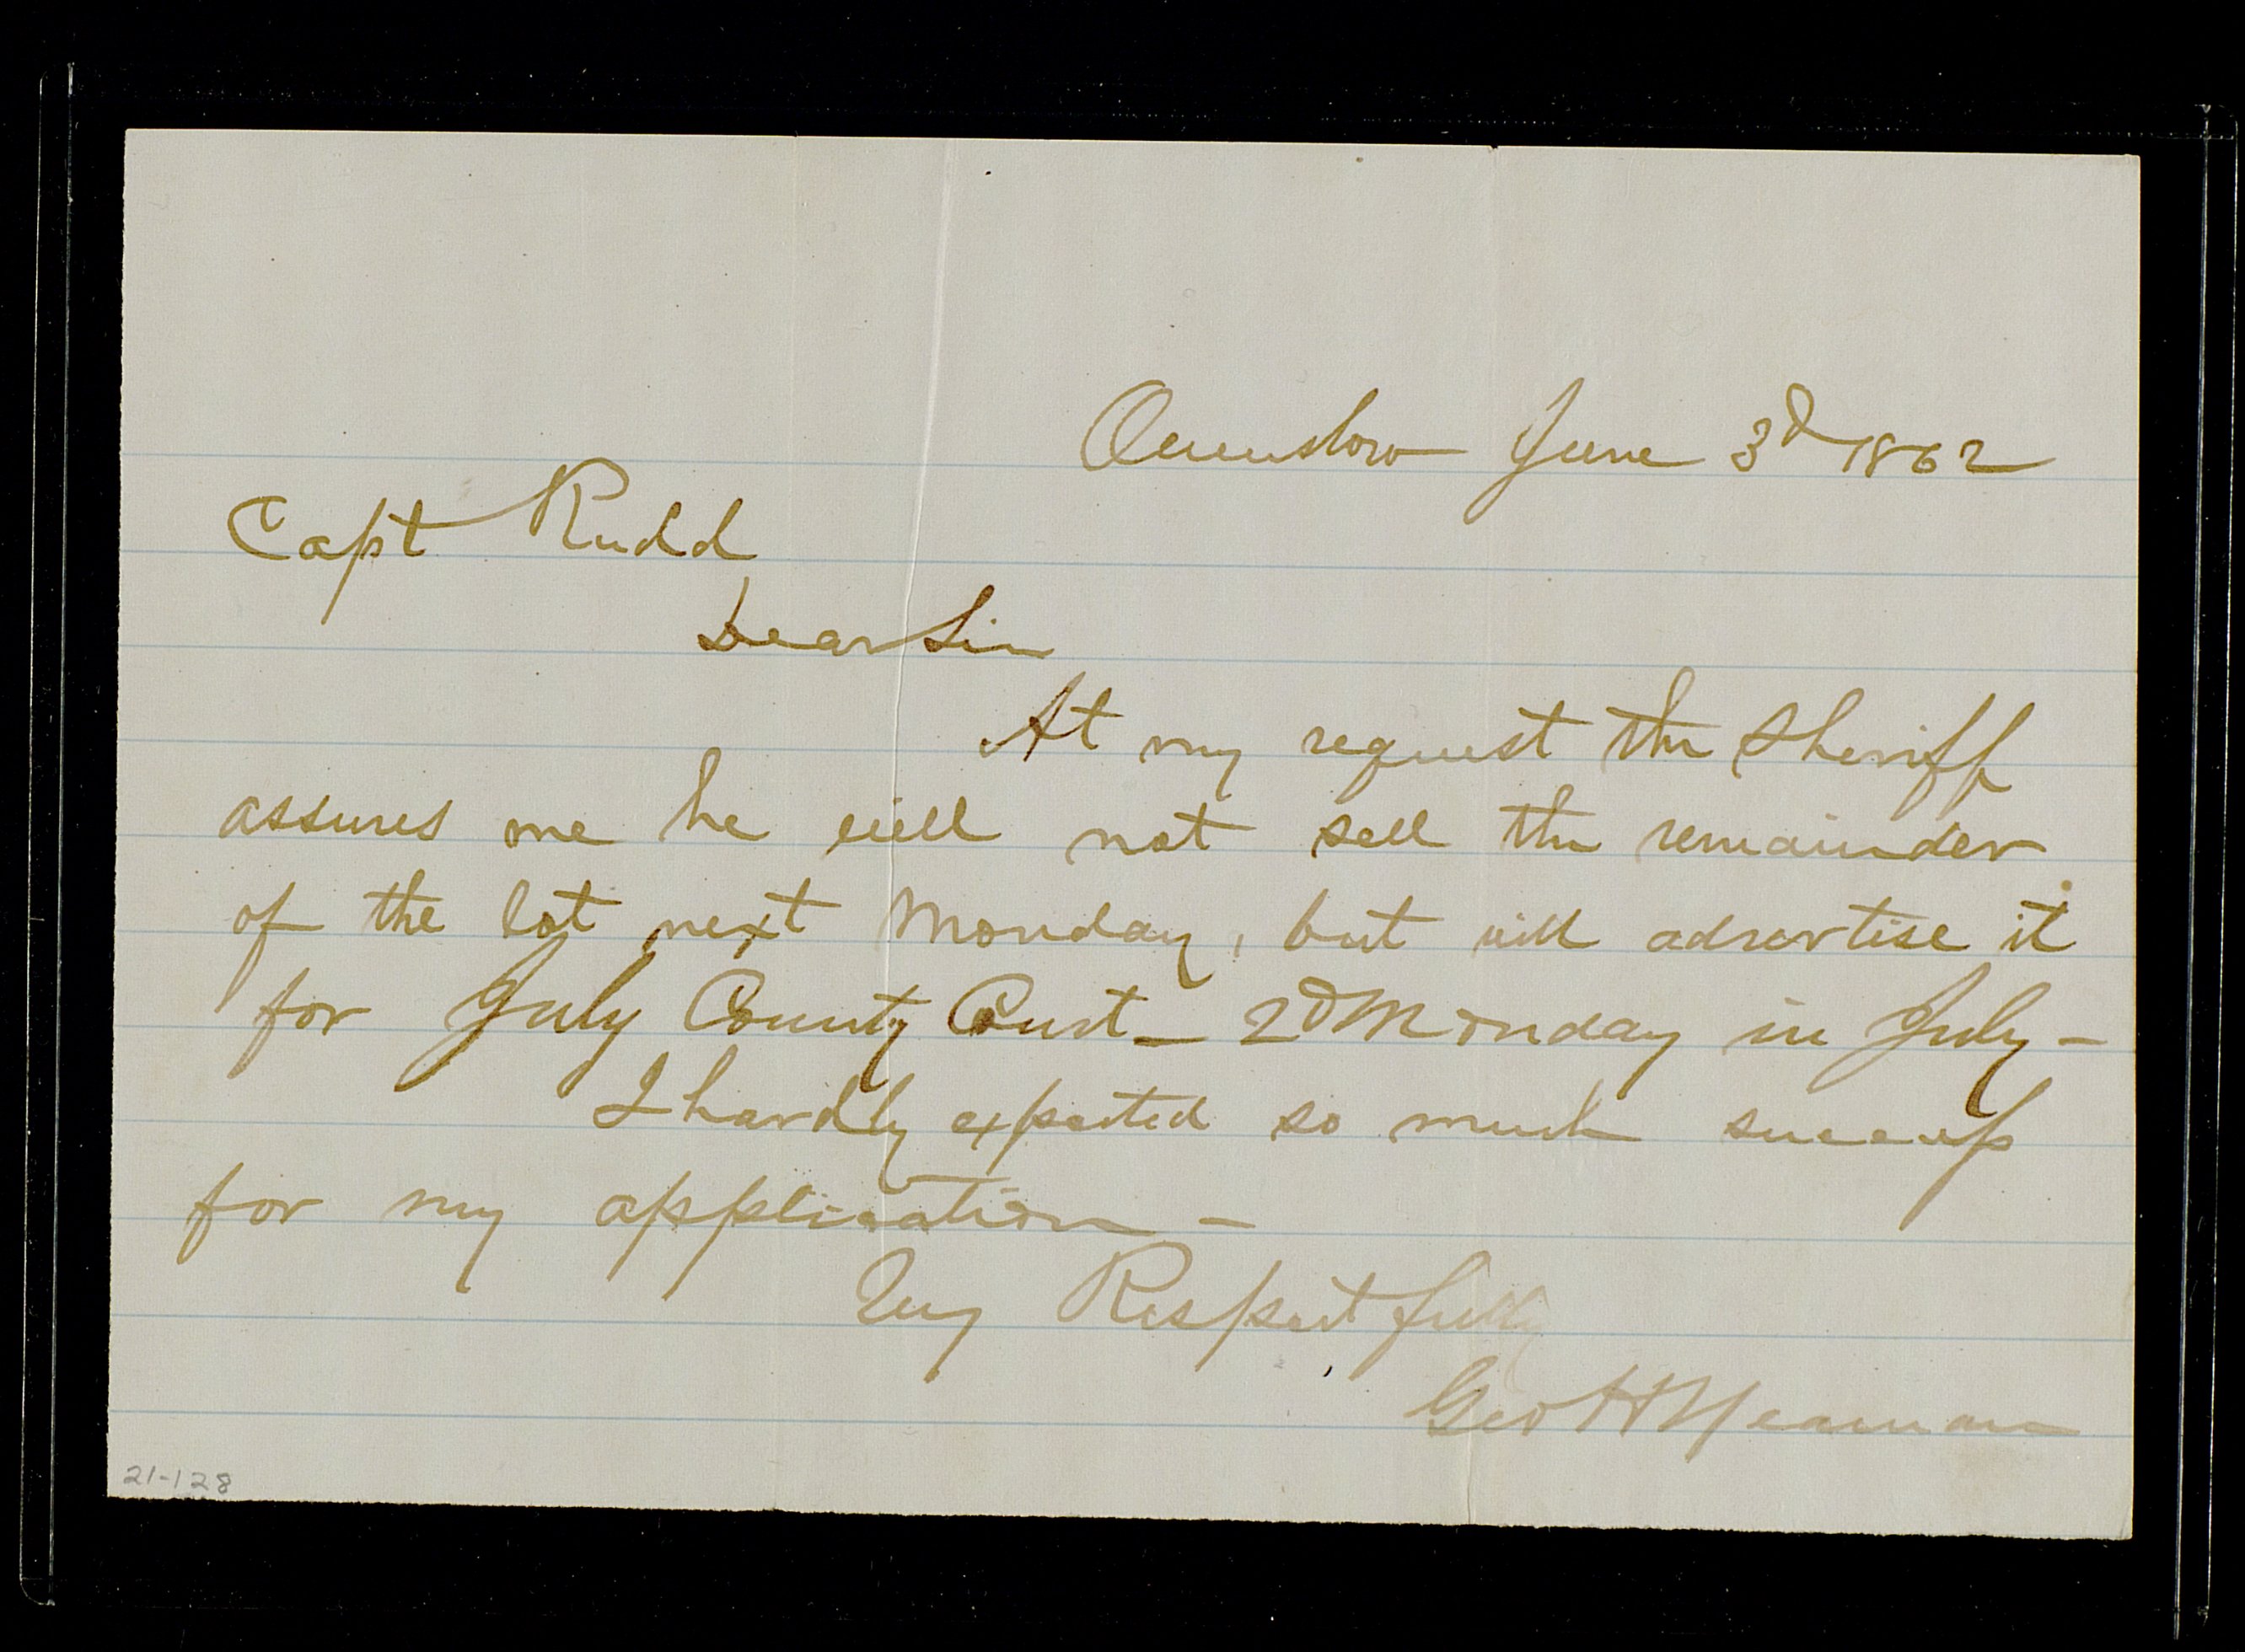 Owensboro June 3d 1862
Capt Rudd
Dear Sir
At my request the Sheriff
assures me he will not sell the remainder
of the lot next Monday, but will advertise it
for July County Court - 2d Monday in July -
I hardly expected so much success
for my application -
Very Respectfully
Geo H Yeaman
21-128